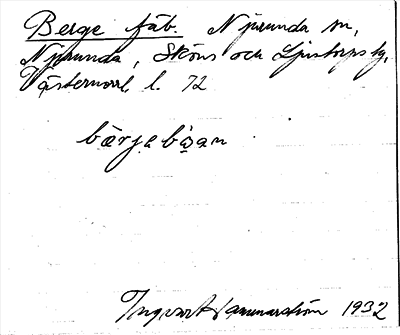 Berge fäb. Njurunda sn,
Njurunda, Sköns och Ljustorps tg,
Västernorrl. l. 72
bärjabo̯an
Ingvart Hammarström 1932